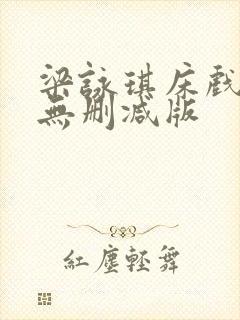 梁詠琪床戲
無刪減版
紅塵輕舞